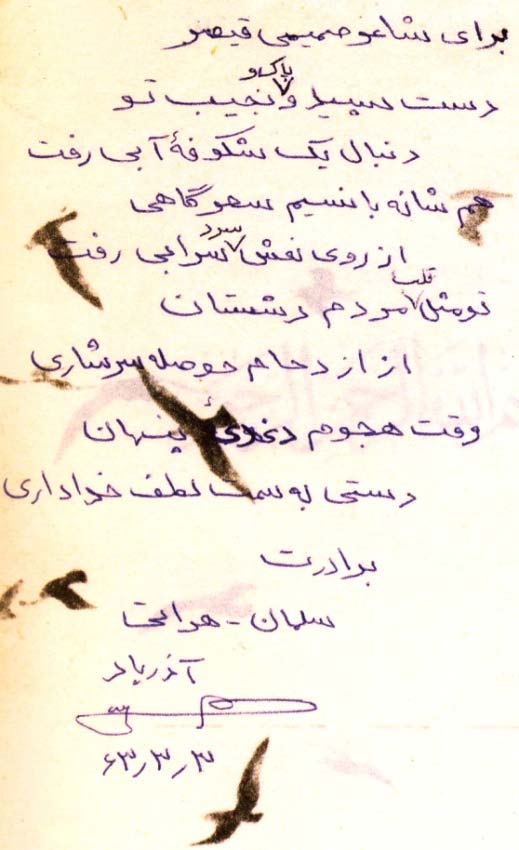 برای شاعر صمیمی قیصر
دست سپید و پاک و نجیب تو
دنبال یک شکوفهٔ آبی رفت
هم شانه با نسیم سحرگاهی
از روی نعش سرد سرابی رفت
تو مثل قلب مردم دشتستان
از ازدحام حوصله سرشاری
وقت هجوم دغدغهٔ پنهان
دستی به سمت لطف خدا داری
برادرت
سلمان - هراتی
آذرباد
۶۳٫۳٫۳